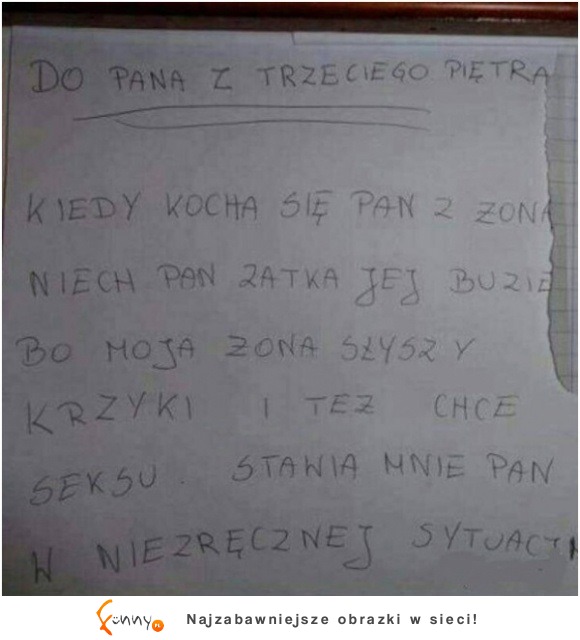 DO PANA Z TRZECIEGO PIĘTRA
KIEDY KOCHA SIĘ PAN Z ZONA
NIECH PAN ZATKA JEJ BUZIE
BO MOJA ZONA SŁYSZY
KRZYKI I TEZ CHCE
SEKSU. STAWIA MNIE PAN
W NIEZRĘCZNEJ SYTUACJI
Funny.PL Najzabawniejsze obrazki w sieci!